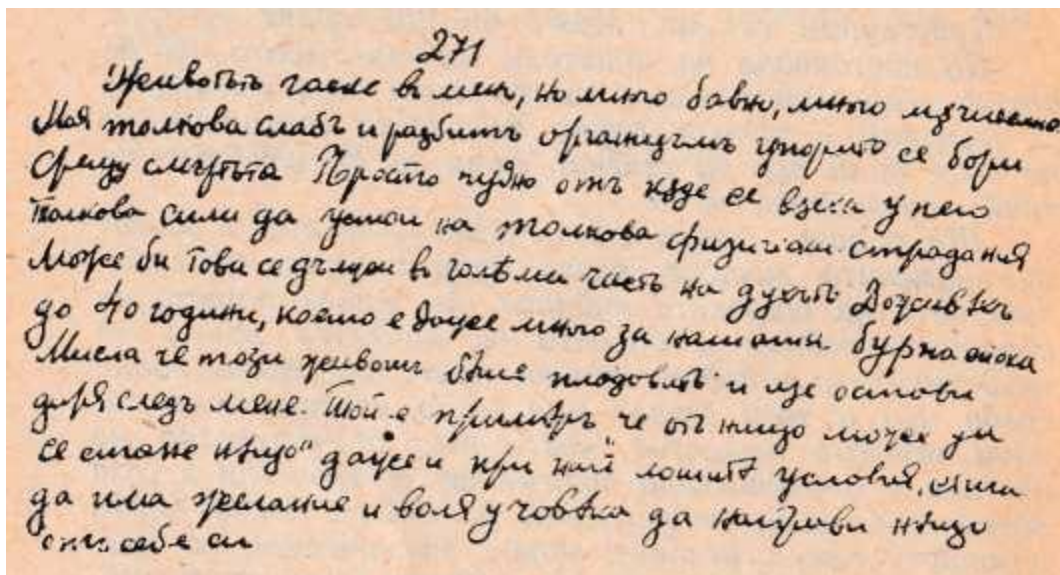 271
Животътъ гасне въ менъ, но много бавно, много мѫчително
Моя толкова слабъ и разбитъ организъмъ упорито се бори
срещу смъртьта Просто чудно отъ кѫде се взеха у него
толкова сили да устои на толкова физически страдания
Може би това се дължи въ голѣма часть на духътъ Доживѣхъ
до 40 години, което е доше много за нашата бурна епоха
Мисля че този животъ бѣше плодовитъ и ще остави
диря следъ мене. Той е примѣръ че отъ нищо може да
се стане нѣщо" даже и при най лошитѣ условия, стига
да има желание и воля у човѣка да направи нѣщо
отъ себе си